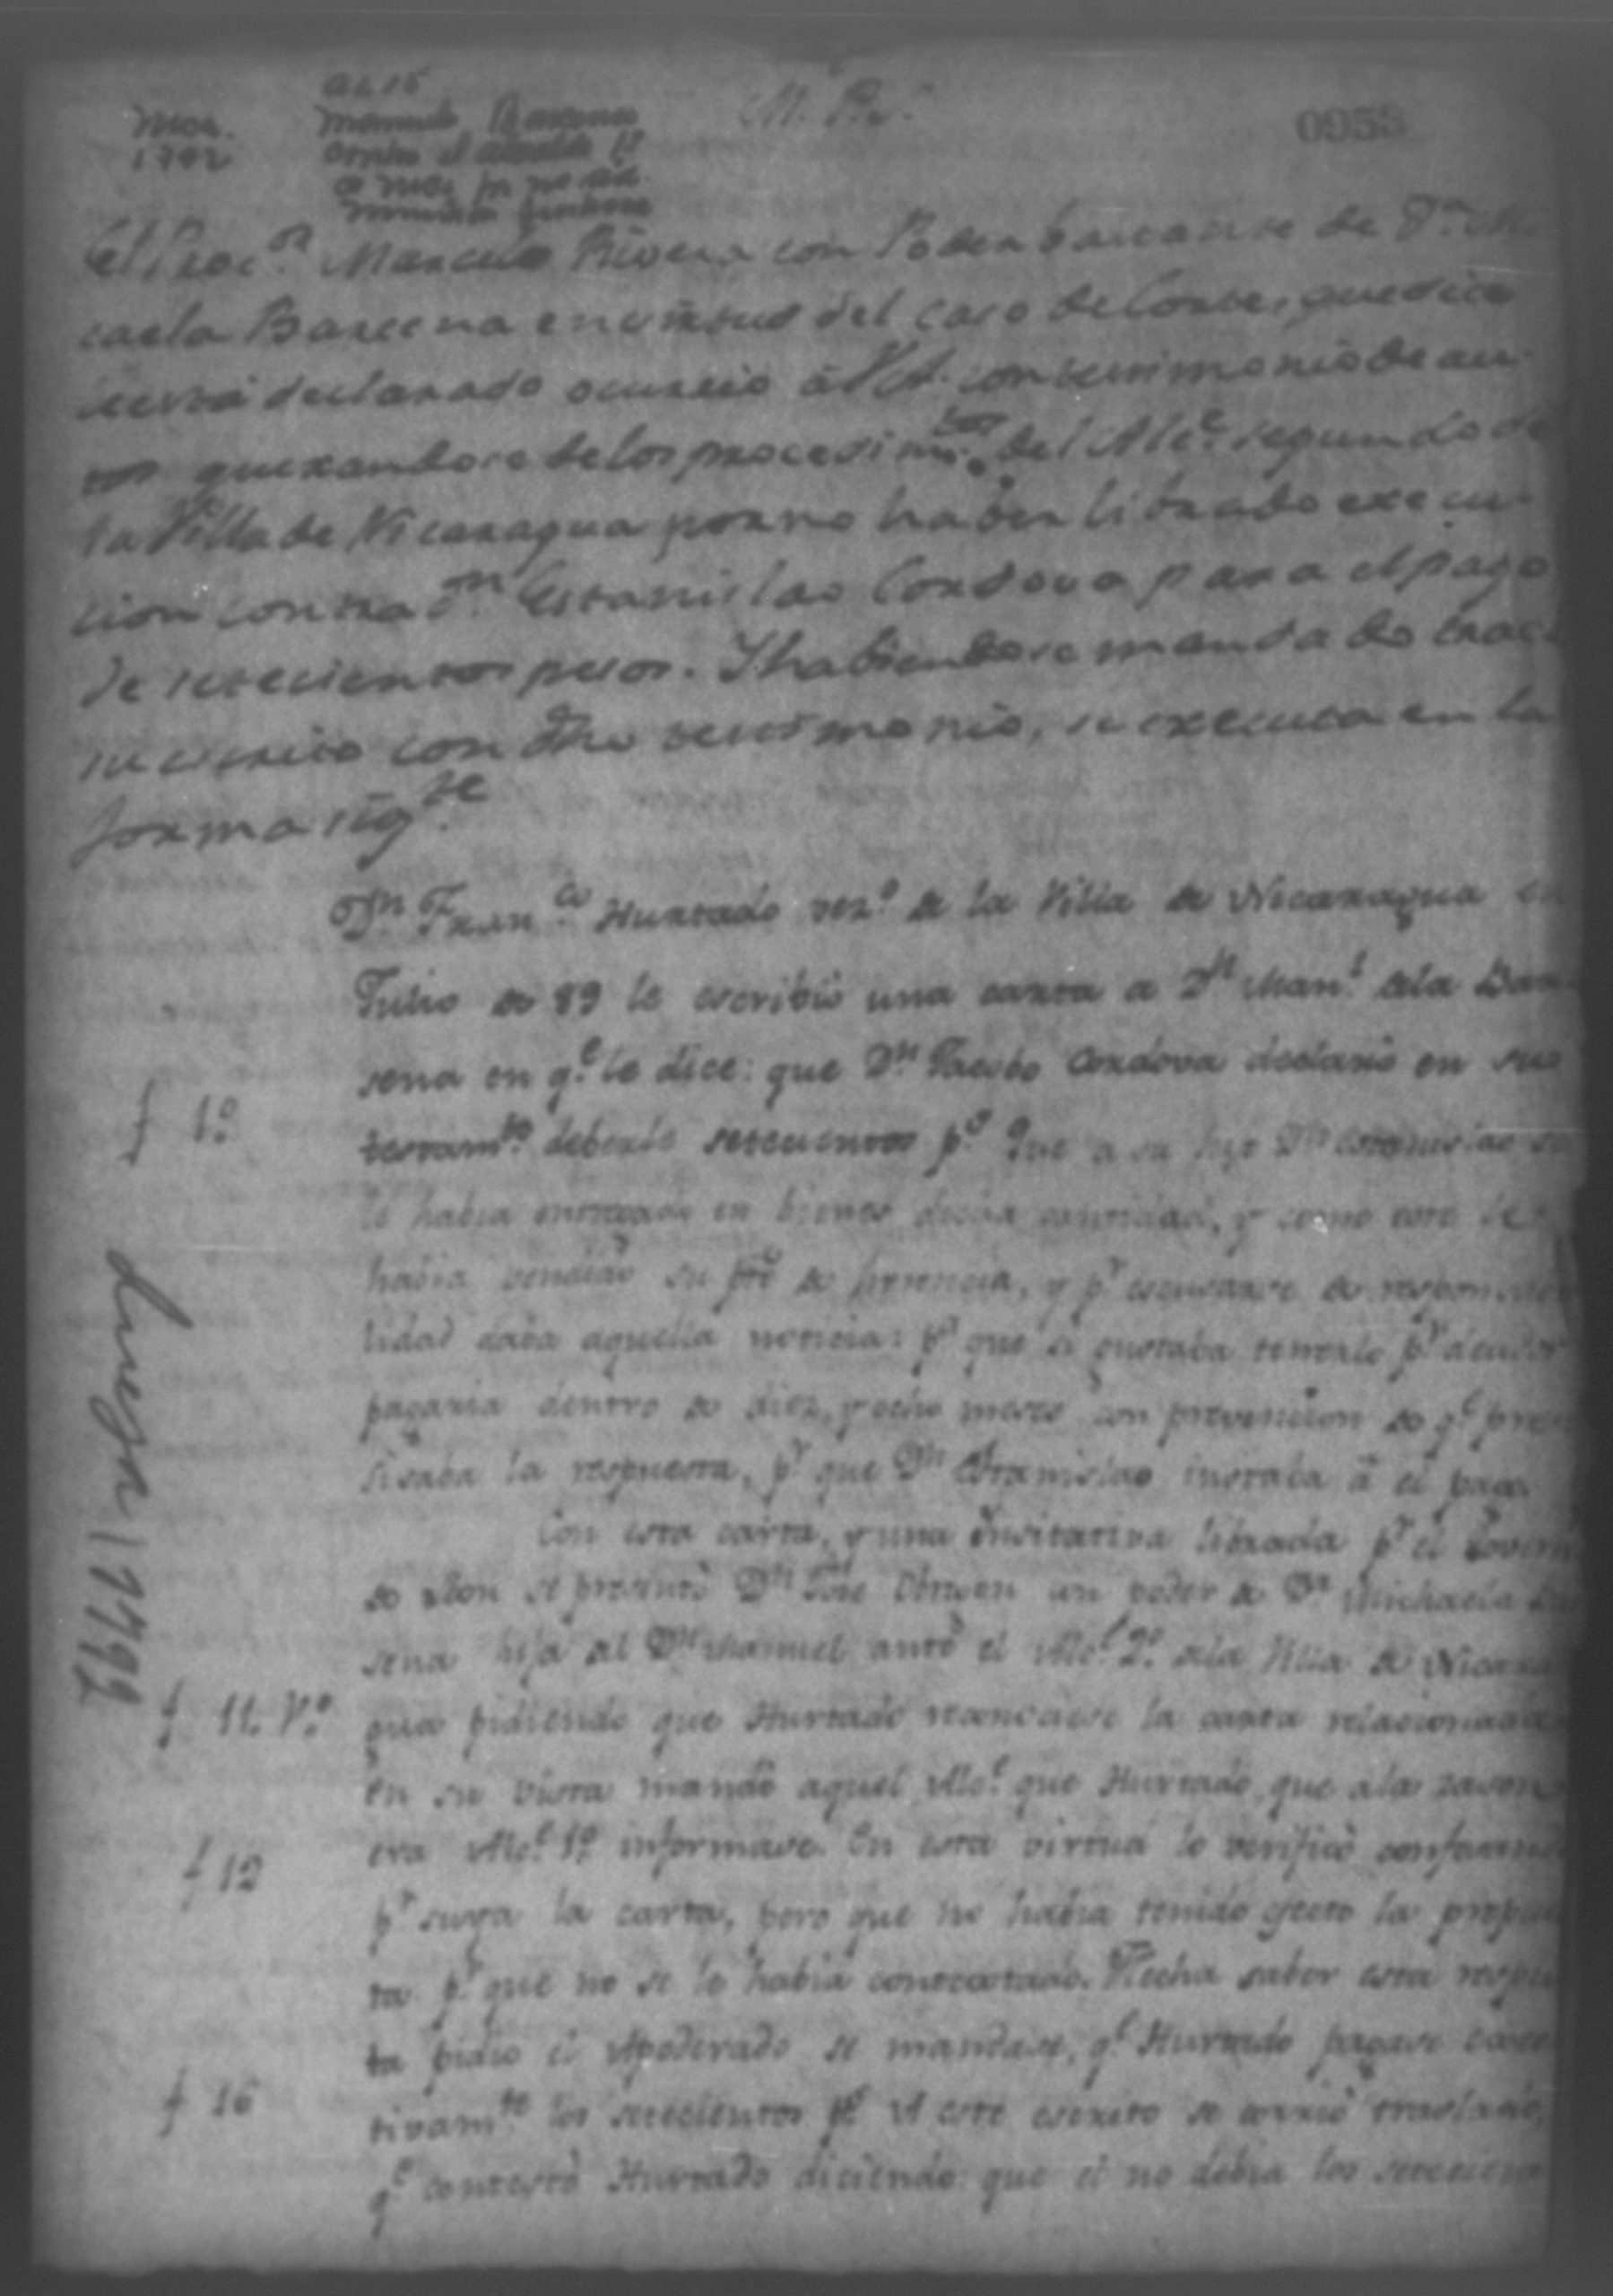 M. P. S.
0953
Nica.
1792
a L 15
El Proc.or Marcelo Rivera con Poder bastante de D.a Mi
caela Barcena en virtud del caso de Corte, que dice
declarado ocurrió â V.A. con testimonio de au
tos quexandose de los procedim.tos del Alc.e segundo de
la Villa de Nicaragua por no haber librado execu
cion contra D.n Estanislao Cordova para el pago
de setecientos pesos. Y habiendose mandado
su escrito con dho testimonio, se executa en la
forma sig.te
D.n Fran.co Hurtado vez.o de la Villa de Nicaragua en
Julio de 89 le escribió una carta a D.n Man.l de la Bar
sena en q.e le dice: que D.n Jacobo Cordova declaró en su
f 1.o
testam.to deberle setecientos p.s que a su hijo D.n Estanislao se
le habia entregado en bienes dicha cantidad, y como este le
habia vendido su pte de herencia, y p.r escusarse de responsabi
lidad daba aquella noticia: p.r que si gustaba tenerlo p.r deudor
pagaria dentro de diez, y ocho meses con prevencion de q.e pre
sisaba la respuesta, p.r que D.n Estanislao instaba â el pago.
Con esta carta, y una insitativa librada p.r el Govern
de Leon se presentó D.n José con poder de D.a Michaela Bar
sena hija del D.n Manuel ante el Alc.e 2.o de la Villa de Nicara
f. 11. V.o
gua pidiendo que Hurtado reconociese la carta relacionada
en su vista mandó aquel Alc.e que Hurtado, que â la sason
era Alc.e 1.o informase. En esta virtud lo verificó confesando
f 12
p.r suya la carta, pero que no habia tenido efecto la propues
ta p.r que no se le habia contextado. Hecha saber esta respues
ta pidió el Apoderado se mandase, q.e Hurtado pagase execu
f 16
tivam.te los setecientos p.s A este escrito se corrió traslado,
q.e contestó Hurtado diciendo: que el no debia los setecien
1799